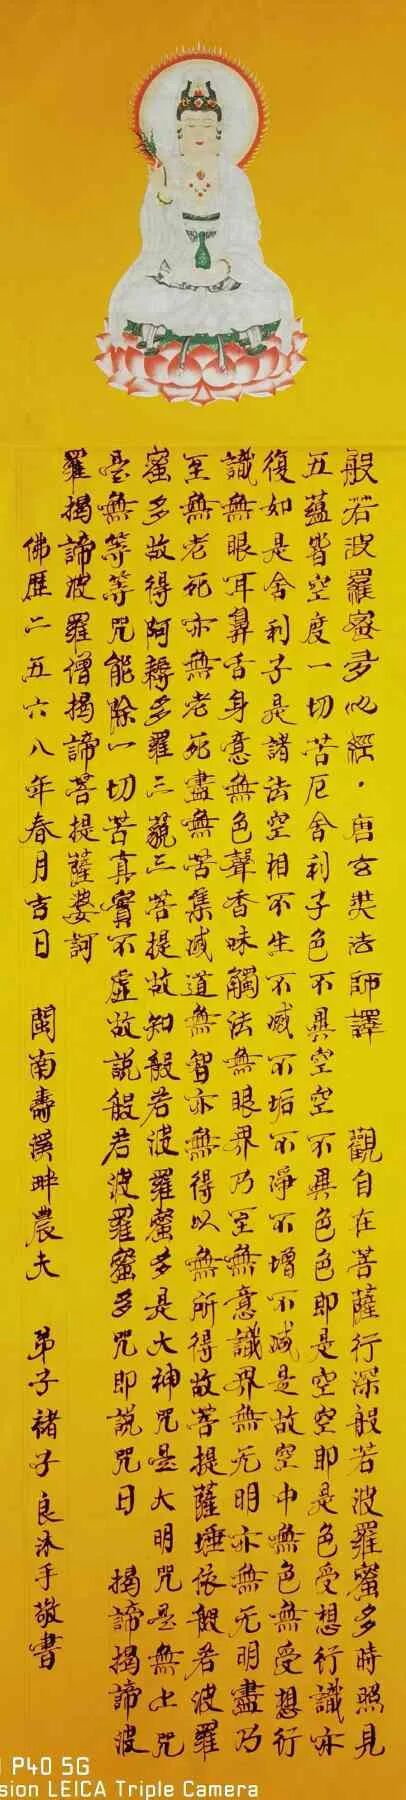 般若波羅密多心經·唐玄奘法師譯 觀自在菩薩行深般若波羅蜜多時照見
五蘊皆空度一切苦厄舍利子色不異空空不異色色即是空空即是色受想行識亦
復如是舍利子是諸法空相不生不滅不垢不淨不增不减是故空中無色無受想行
識無眼耳鼻舌身意無色聲香味觸法無眼界乃至無意識界無无明亦無无明盡乃
至無老死亦無老死盡無苦集滅道無智亦無得以無所得故菩提薩埵依般若波羅
蜜多故得阿耨多羅三藐三菩提故知般若波羅蜜多是大神咒是大明咒是無上咒
是無等等咒能除一切苦真實不虛故說般若波羅蜜多咒即說咒曰 揭諦揭諦波
羅揭諦波羅僧揭諦菩提薩婆訶
佛歷二五六八年春月吉日 閩南壽溪畔農夫 弟子褚子良沐手敬書
P40 5G
sion LEICA Triple Camera